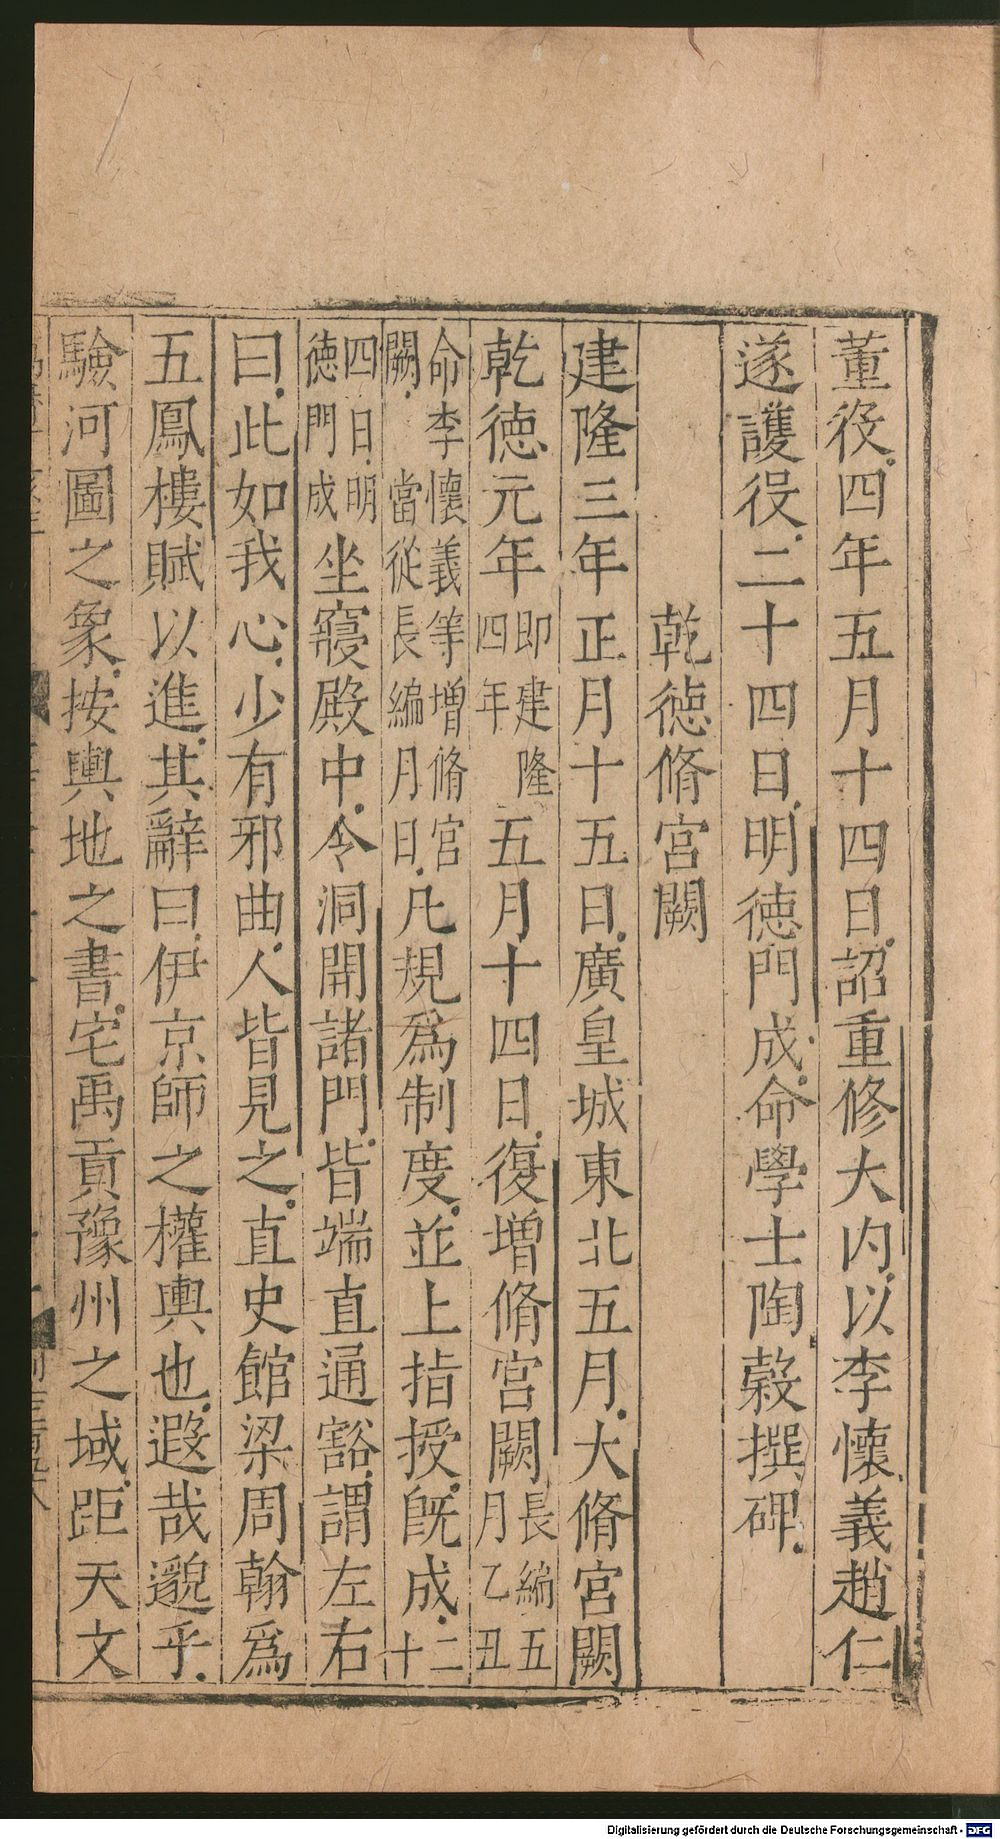 董役四年五月十四日詔重修大内以李懷義趙仁
遂護役二十四日明德門成命學士陶穀撰碑
乾德脩宮闕
建隆三年正月十五日廣皇城東北五月大脩宮闕
乾德元年即建隆四年五月十四日復增脩宮闕長編五月乙丑
命李懷義等增脩宮闕當從長編月日凡規爲制度並上指授旣成二十
四日明德門成坐寢殿中令洞開諸門皆端直通豁謂左右
曰此如我心少有邪曲人皆見之直史館梁周翰爲
五鳳樓賦以進其辭曰伊京師之權輿也遐哉邈乎
驗河圖之象按輿地之書宅禹貢豫州之域距天文
Digitalisierung gefördert durch die Deutsche Forschungsgemeinschaft - DFG